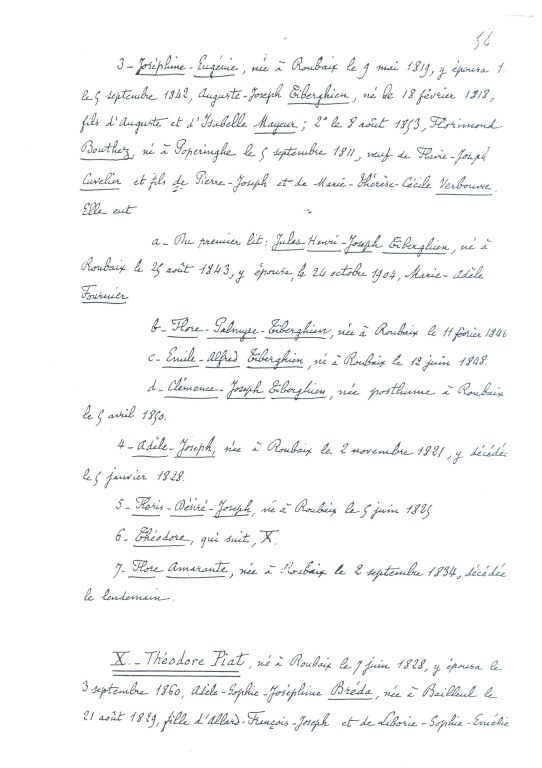 56
3 - Joséphine - Eugénie, née à Roubaix le 9 mai 1819, y épousa 1
le 5 septembre 1842, Auguste-Joseph Tiberghien, né le 18 février 1818,
fils d'Auguste et d'Isabelle Mayeur ; 2° le 8 août 1853, Florimond
Bouthez, né à Poperinghe le 5 septembre 1811, veuf de Flavie-Joseph
Cuvelier et fils de Pierre-Joseph et de Marie-Thérèse-Cécile Verbouwe.
Elle eut
a - Du premier lit : Jules Henri-Joseph Tiberghien, né à
Roubaix le 25 août 1843, y épousa, le 24 octobre 1904, Marie-Adèle
Fournier
b - Flore-Palmyre-Tiberghien, née à Roubaix le 11 février 1846
c - Emile-Alfred Tiberghien, né à Roubaix le 12 juin 1848.
d - Clémence-Joseph Tiberghien, née posthume à Roubaix
le 5 avril 1850.
4 - Adèle-Joseph, née à Roubaix le 2 novembre 1821, y décédée
le 5 janvier 1828.
5 - Floris-Désiré-Joseph, né à Roubaix le 5 juin 1825
6 - Théodore, qui suit, X.
7 - Flore Amarante, née à Roubaix le 2 septembre 1834, décédée
le lendemain.
X. - Théodore Piat, né à Roubaix le 7 juin 1828, y épousa le
3 septembre 1860, Adèle-Sophie-Joséphine Bréda, née à Bailleul le
21 août 1829, fille d'Allard-François-Joseph et de Liborie-Sophie-Emélie